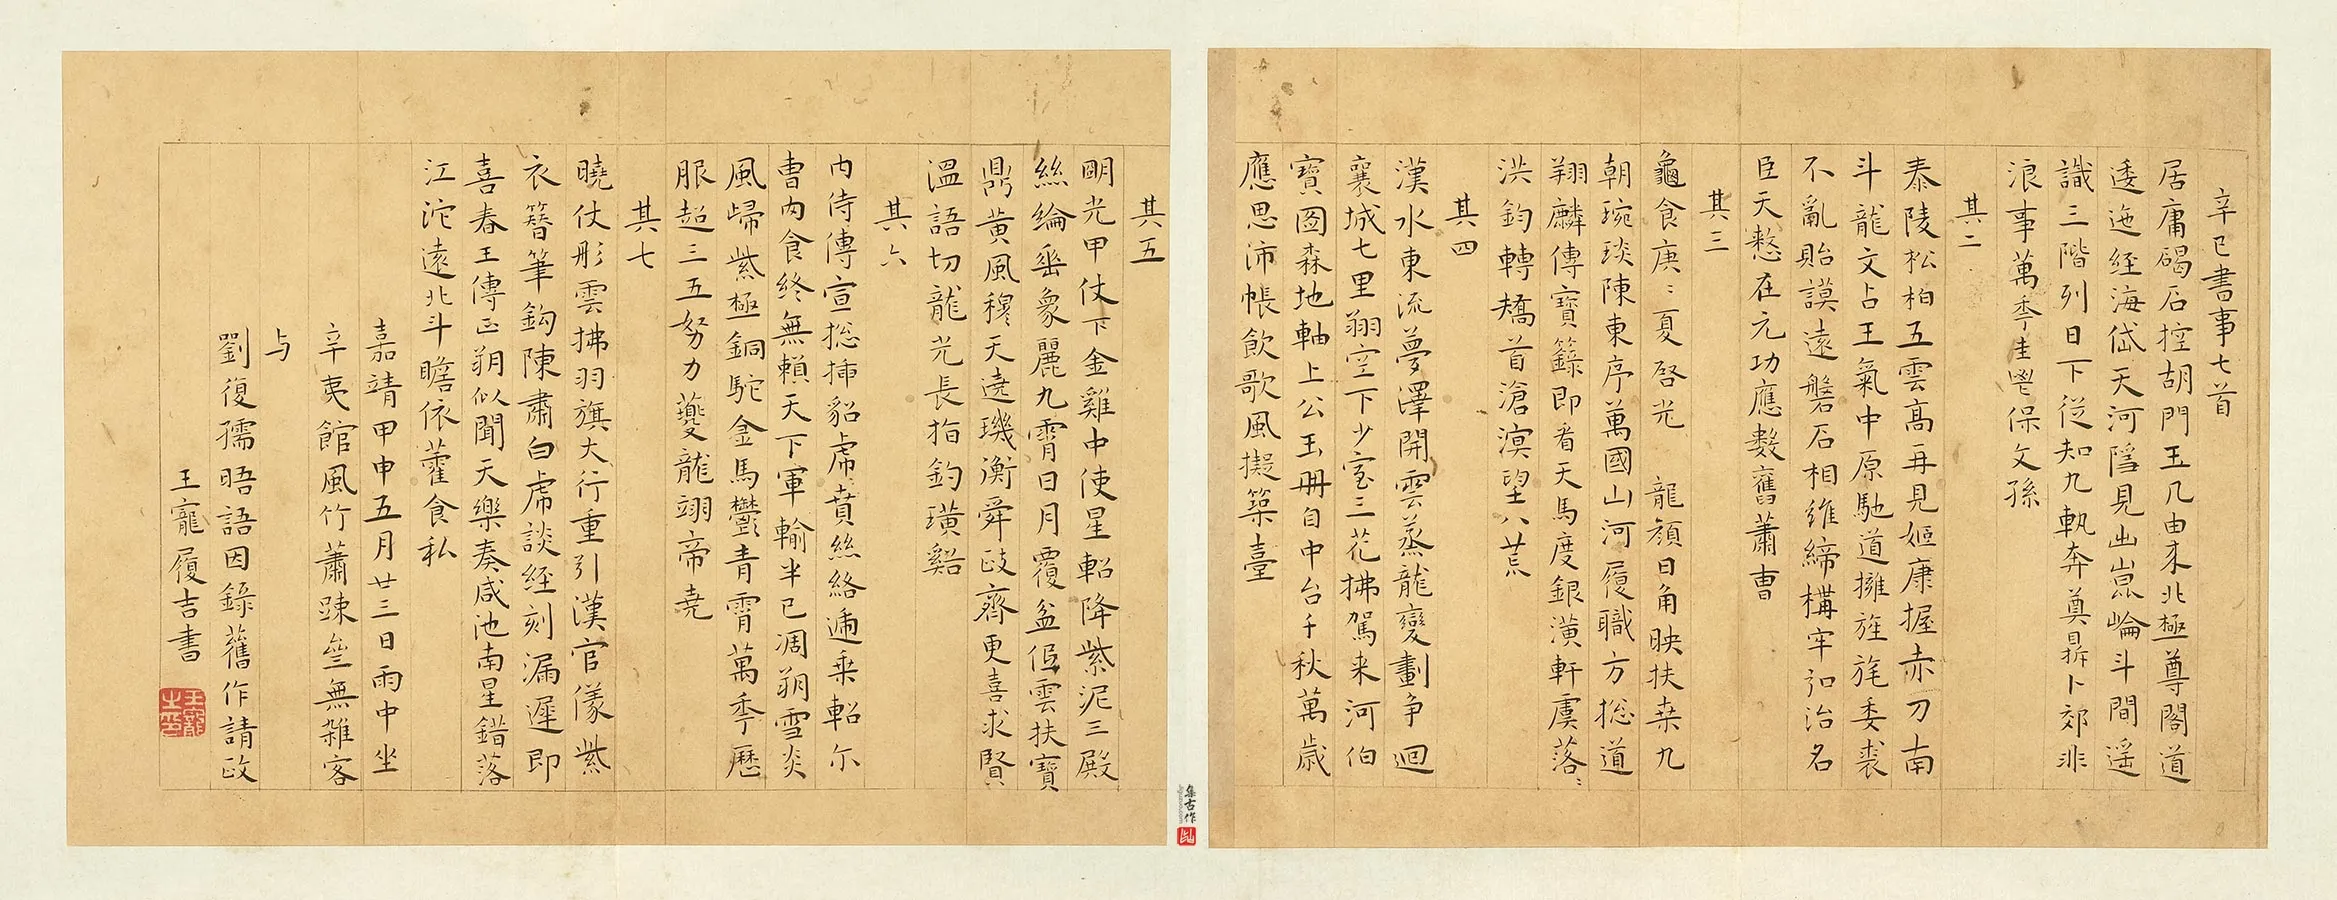 辛巳書事七首
居庸碣石控胡門玉几由来北極尊閣道
逶迤經海岱天河隱見出崑崘斗間遥
識三階列日下從知九軌奔奠鼎卜郊非
浪事萬季圭鬯保文孫
其二
泰陵松柏五雲高再見姬康握赤刀南
斗龍文占王氣中原馳道擁旌旄委裘
不亂貽謨遠磐石相維締構牢引治名
臣天憖在元功應數舊蕭曹
其三
龜食庚〻夏啓光 龍顏日角映扶桒九
朝琬琰陳東序萬國山河履職方揔道
翔麟傳寶籙即看天馬度銀潢軒虞落〻
洪鈞轉矯首滄溟望八荒
其四
漢水東流夢澤開雲蒸龍變劃争迴
襄城七里翔空下少室三花拂駕来河伯
寶圖森地軸上公玉冊自中台千秋萬歲
應思沛帳飲歌風擬築臺
其五
朙光甲仗下金雞中使星軺降紫泥三殿
絲綸垂象麗九霄日月覆盆伍雲扶寶
鼎黄風穆天遶璣衡舜政齊更喜求賢
溫語切龍光長指釣璜谿
其六
内侍傳宣揔插貂虎賁絲絡逓乗軺尓
曹内食終無賴天下軍輸半已凋朔雪炎
風歸紫極銅駝金馬鬱青霄萬季曆
服超三五努力夔龍翊帝堯
其七
曉仗彤雲拂羽旗大行重引漢官儀紫
衣簪筆鈎陳肅白虎談經刻漏遲即
喜春王傳正朔似聞天樂奏咸池南星錯落
江沱遠北斗瞻依藿食私
嘉靖甲申五月廿三日雨中坐
辛夷館風竹蕭踈無雜客
与
劉復孺晤語因錄舊作請政
王寵履吉書
王寵之印
集古作